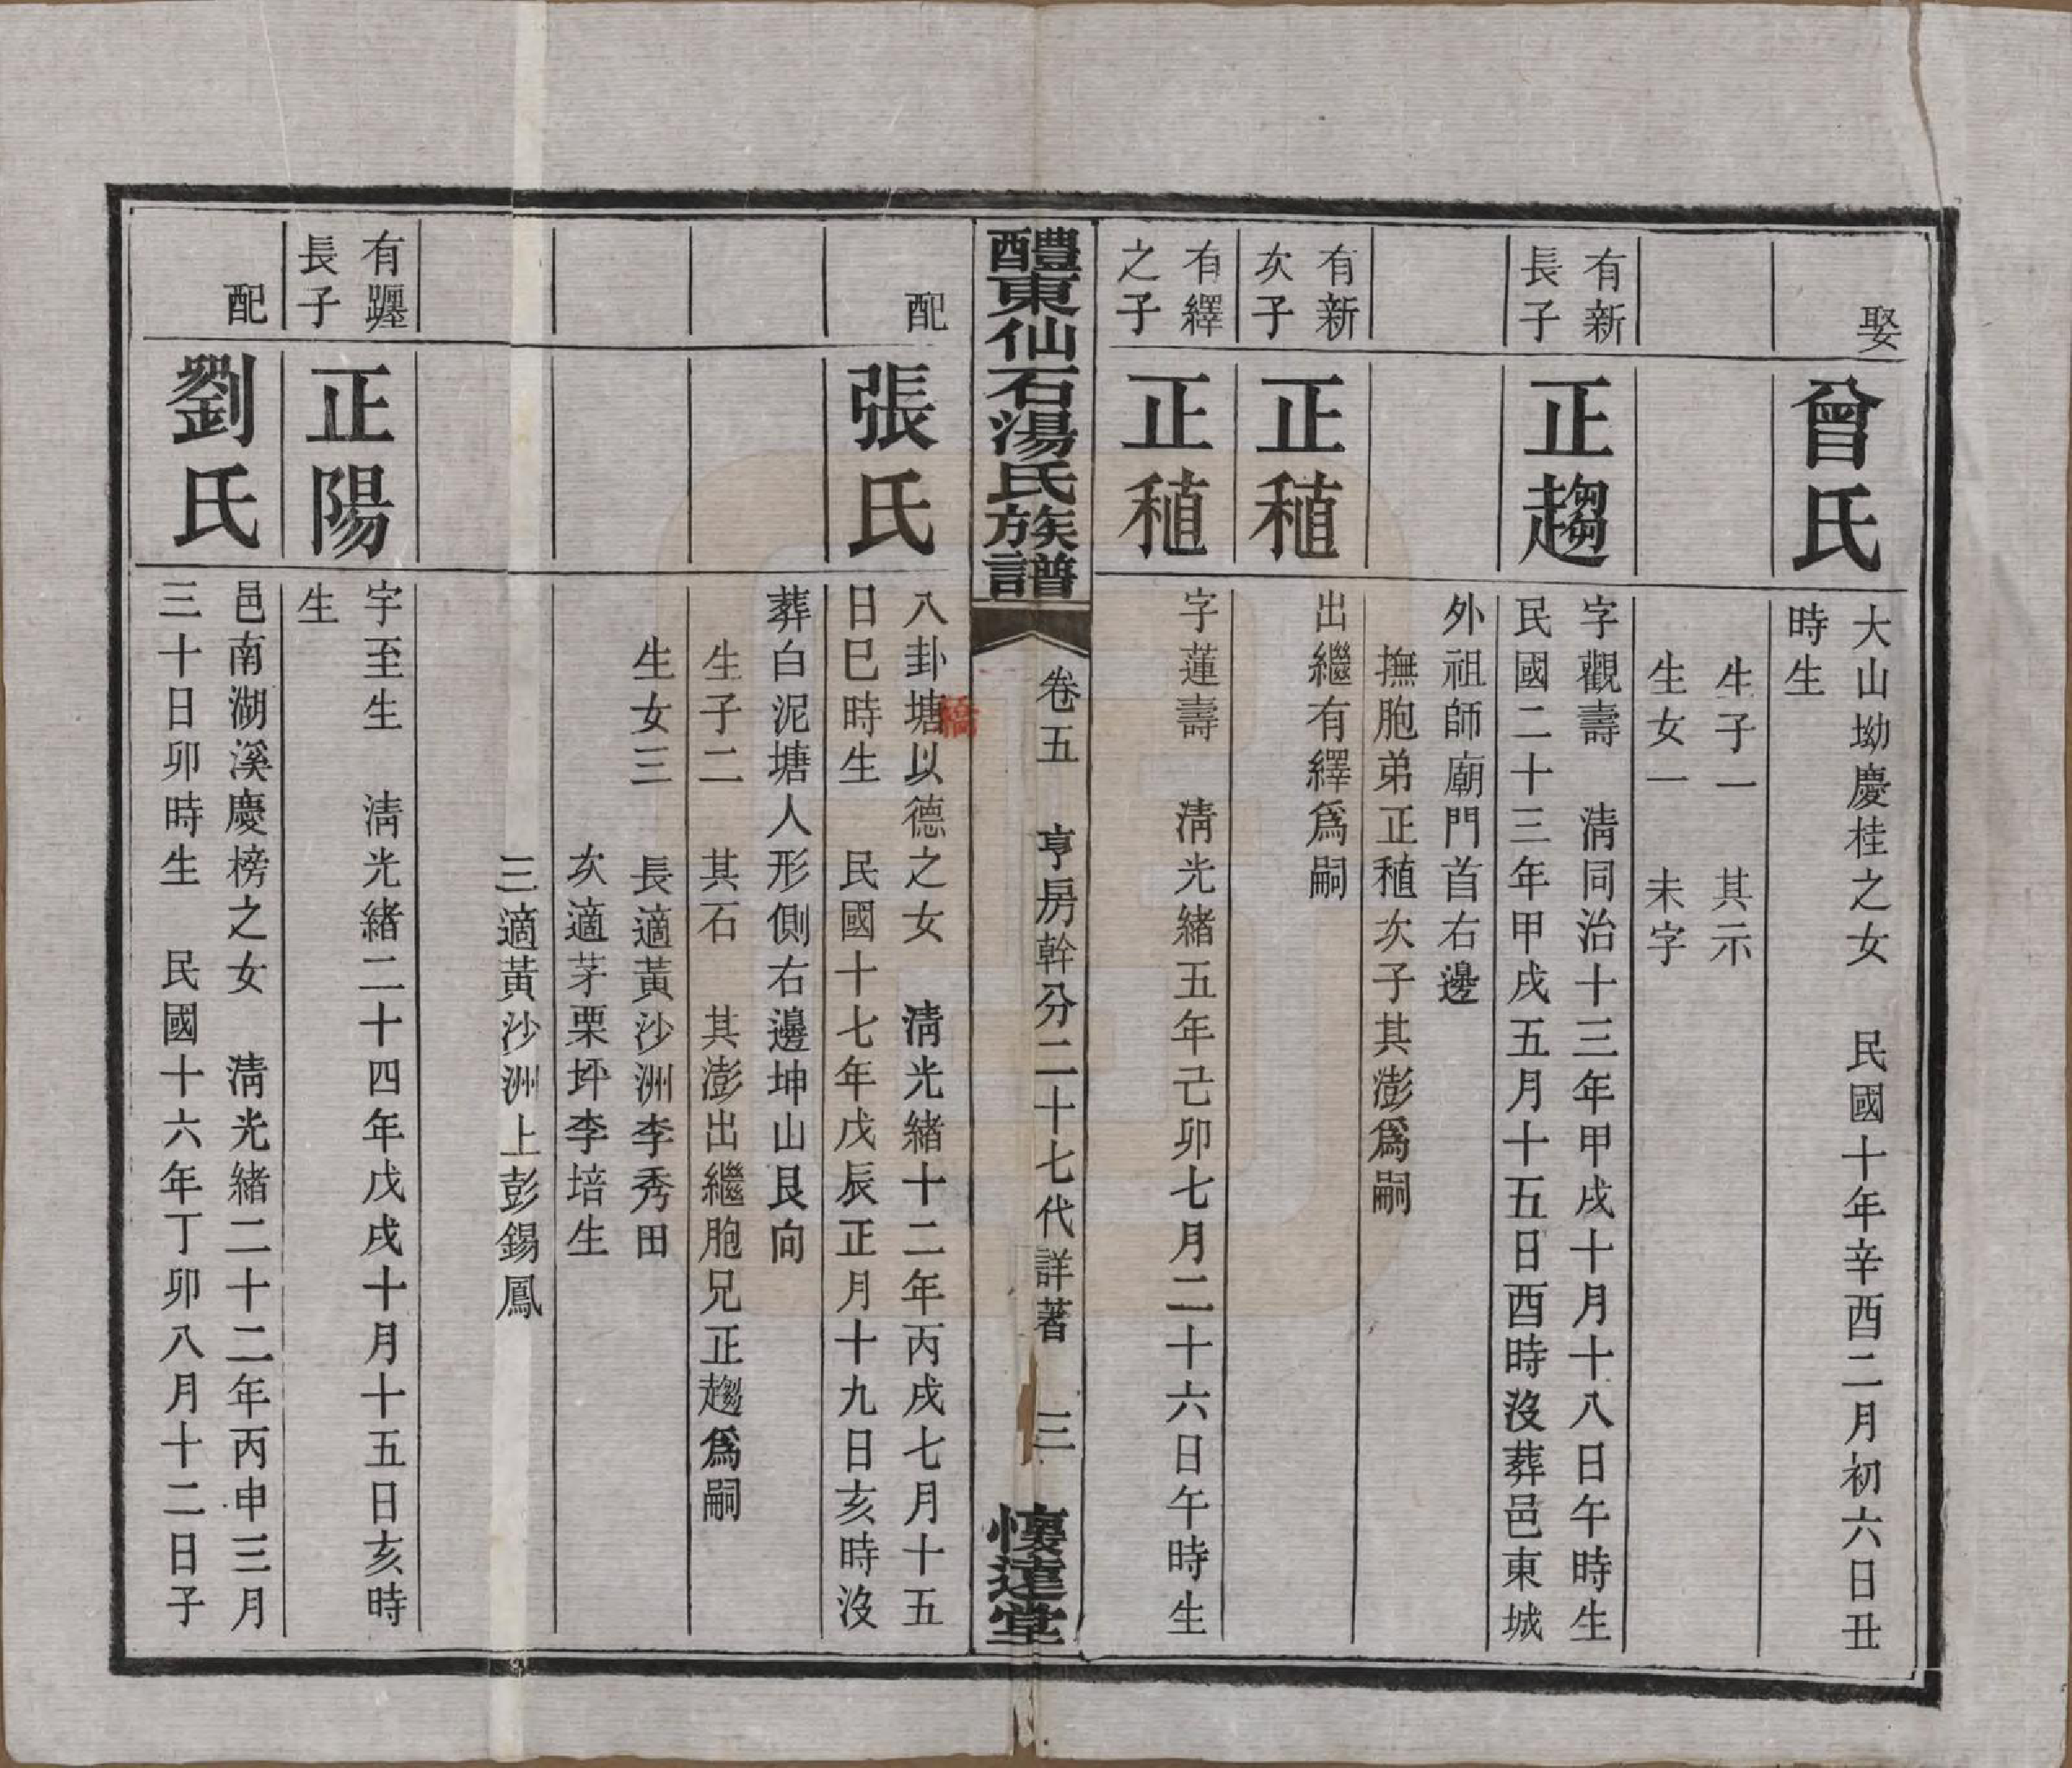 娶
曾氏
大山坳慶桂之女　民國十年辛酉二月初六日丑
時生
生子一　其示
生女一　未字
有新
長子
正趨
字觀壽　清同治十三年甲戌十月十八日午時生
民國二十三年甲戌五月十五日酉時沒葬邑東城
外祖師廟門首右邊
撫胞弟正稙次子其澎爲嗣
有新
次子
正稙
出繼有繹爲嗣
有繹
之子
正稙
字蓮壽　清光緒五年己卯七月二十六日午時生
醴東仙石湯氏族譜
卷五　亨房幹分二十七代詳著　三
懷遠堂
配
張氏
八卦塘以德之女　清光緒十二年丙戌七月十五
日巳時生　民國十七年戊辰正月十九日亥時沒
葬白泥塘人形側右邊坤山艮向
生子二　其石　其澎出繼胞兄正趨爲嗣
生女三　長適黃沙洲李秀田
次適茅栗坪李培生
三適黃沙洲上彭錫鳳
有躔
長子
正陽
字至生　清光緒二十四年戊戌十月十五日亥時
生
配
劉氏
邑南湖溪慶榜之女　清光緒二十二年丙申三月
三十日卯時生　民國十六年丁卯八月十二日子